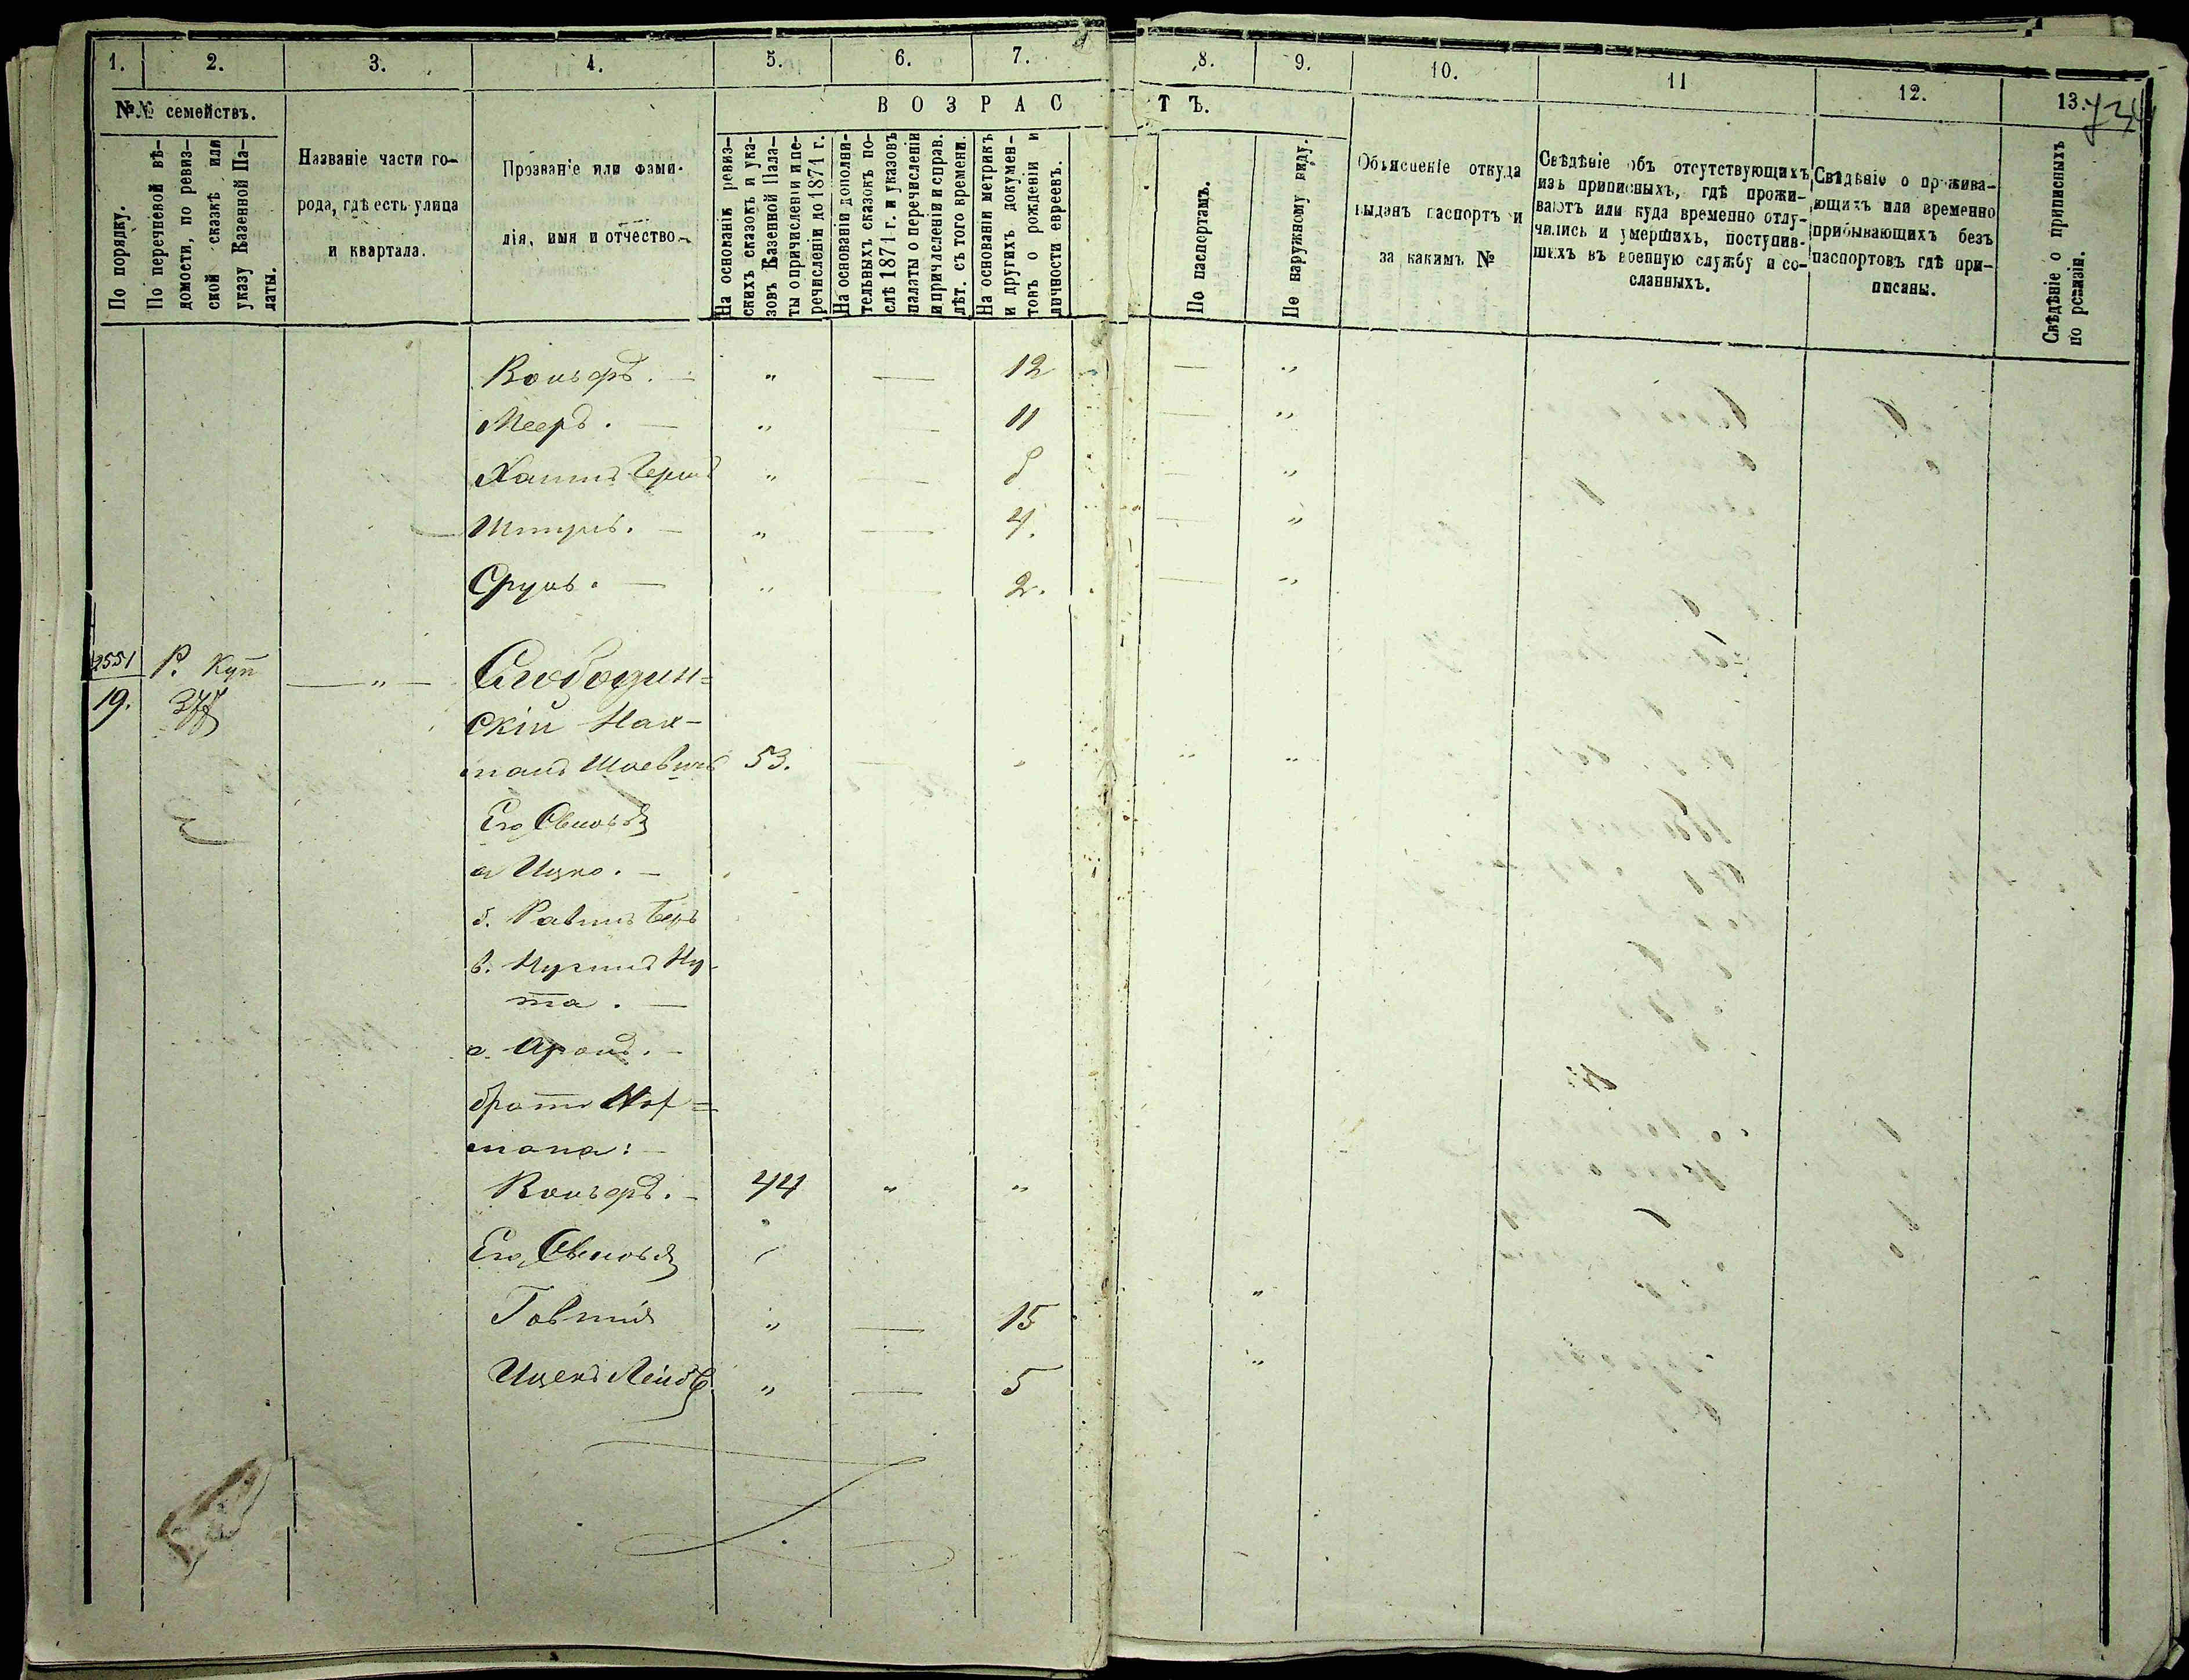 1. 2. 3. 4. 5. 6. 7. 8. 9. 10. 11 12. 13.
734
№№ семействъ.
В О З Р А С Т Ъ.
По порядку.
По перечневой вѣ-
домости, по ревиз-
ской сказкѣ или
указу Казенной Па-
латы.
Названіе части го-
рода, гдѣ есть улица
и квартала.
Прозваніе или фами-
лія, имя и отчество.
На основаніи ревиз-
скихъ сказокъ и ука-
зовъ Казенной Пала-
ты о причисленіи и пе-
речисленіи до 1871 г.
На основаніи дополни-
тельныхъ сказокъ по-
слѣ 1871 г. и указовъ
палаты о перечисленіи
и причисленіи и справ.
лѣт. съ того времени.
На основаніи метрикъ
и другихъ докумен-
товъ о рожденіи и
личности евреевъ.
По паспортамъ.
По наружному виду.
Объясненіе откуда
выданъ паспортъ и
за какимъ №
Свѣдѣніе объ отсутствующихъ
изъ приписныхъ, гдѣ прожи-
ваютъ или куда временно отлу-
чились и умершихъ, поступив-
шихъ въ военную службу и со-
сланныхъ.
Свѣдѣніе о прожива-
ющихъ или временно
прибывающихъ безъ
паспортовъ гдѣ при-
писаны.
Свѣдѣніе о приписныхъ
по ревизіи.
Вольфъ. — „ — 12 — „
Мееръ. — „ — 11 — „
Хаимъ Герш „ — 8 — „
Шмуль. — „ — 4. — „
Сруль. — „ — 2. — „
2551 Р. Куп — „ — Слободин=
19. 377 скій Нах-
манъ Шаевичъ 53. — „ „ „
Его Сыновья
а Ицко. —
б. Равинъ Беръ
в. Нухимъ Ну-
та. —
г. Аронъ. —
братъ Нах=
мана: —
Вольфъ. — 44 „ „
Его Сыновья
Товшія „ — 15 „
Ицекъ Лейбъ „ — 5 „